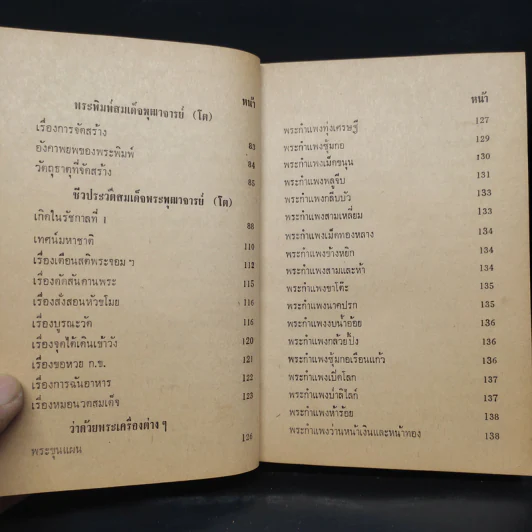 หน้า
พระพิมพ์สมเด็จพุฒาจารย์ (โต)
เรื่องการจัดสร้าง 83
องค์าพยพของพระพิมพ์ 84
วัตถุธาตุที่จัดสร้าง 85
ชีวประวัติสมเด็จพระพุฒาจารย์ (โต)
เกิดในรัชกาลที่ 1 88
เทศน์มหาชาติ 110
เรื่องเตือนสติพระจอมฯ 112
เรื่องดัดสันดานพระ 115
เรื่องสั่งสอนหัวขโมย 116
เรื่องบูรณะวัด 116
เรื่องจุดไต้เดินเข้าวัง 120
เรื่องขอหวย ก.ข. 121
เรื่องการฉันอาหาร 122
เรื่องหมอนวดสมเด็จ 123
ว่าด้วยพระเครื่องต่าง ๆ
พระขุนแผน 126
หน้า
พระกำแพงทุ่งเศรษฐี 127
พระกำแพงซุ้มกอ 129
พระกำแพงเม็ดขนุน 130
พระกำแพงพลูจีบ 131
พระกำแพงกลีบบัว 133
พระกำแพงสามเหลี่ยม 133
พระกำแพงเม็ดทองหลาง 134
พระกำแพงช้างหยิก 134
พระกำแพงสามและห้า 134
พระกำแพงขาโต๊ะ 135
พระกำแพงนาคปรก 135
พระกำแพงงบน้ำอ้อย 136
พระกำแพงกล้วยปิ้ง 136
พระกำแพงซุ้มกอเรือนแก้ว 136
พระกำแพงเปิดโลก 137
พระกำแพงป่าลิไลก์ 137
พระกำแพงห้าร้อย 138
พระกำแพงว่านหน้าเงินและหน้าทอง 138